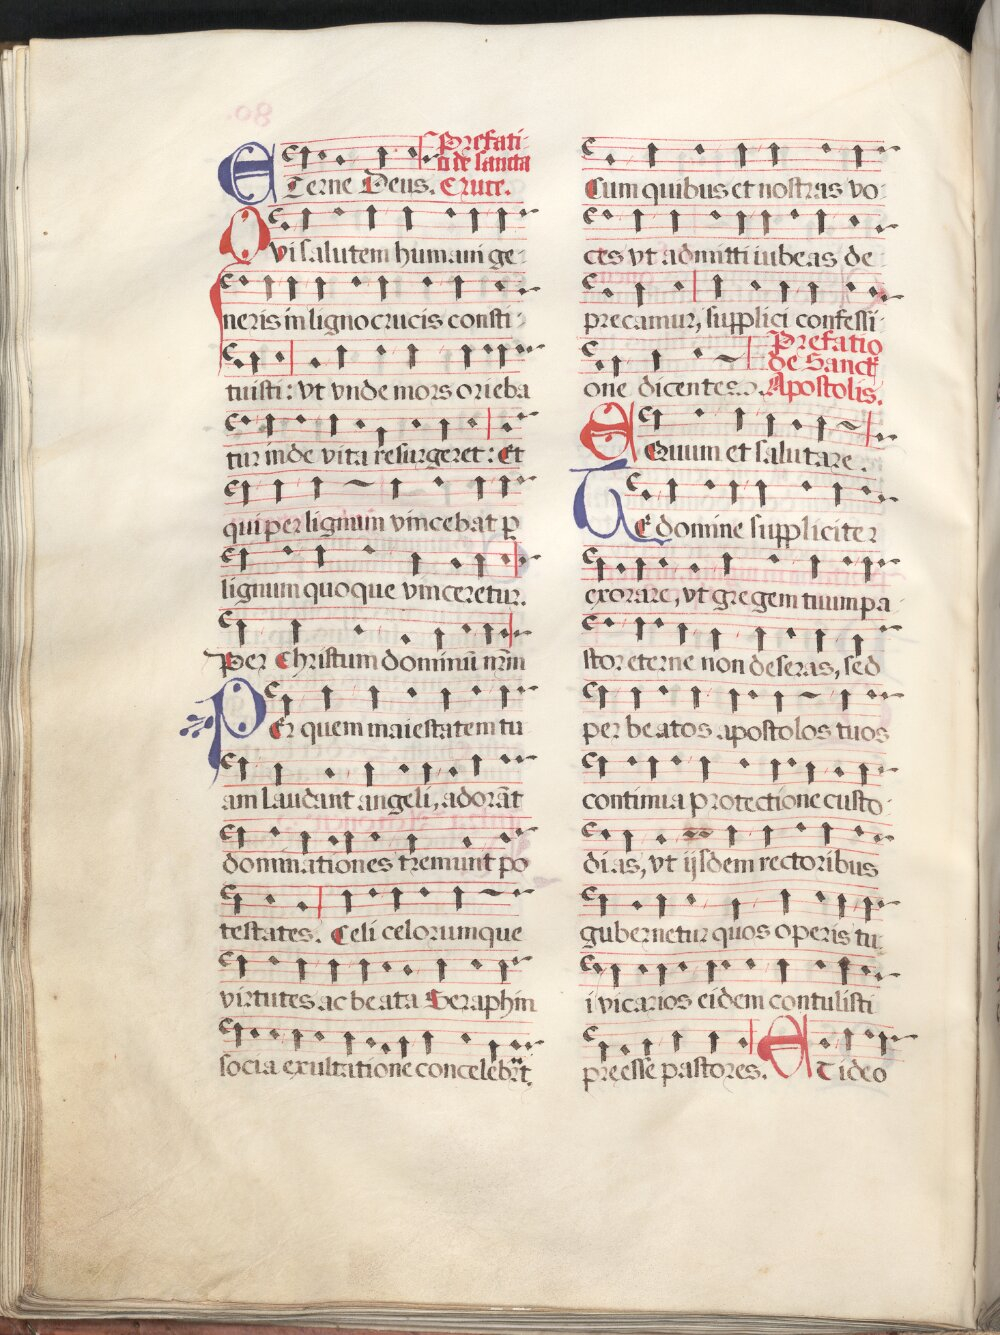 ETerne Deus. Prefati
o de sancta
Cruce.
Qui salutem humani ge
neris in ligno crucis consti
tuisti: vt vnde mors orieba
tur inde vita resurgeret: Et
qui per lignum vincebat ꝑ
lignum quoque vinceretur.
Per Christum dominū nr̄m
PEr quem maiestatem tu
am laudant angeli, adorāt
dominationes tremunt po
testates. Celi celorumque
virtutes ac beata Seraphin
socia exultatione concelebrāt.
Cum quibus et nostras vo
ces vt admitti iubeas de
precamur, supplici confessi
one dicentes. Prefatio
de Sanct
Apostolis.
EQuum et salutare.
TE domine suppliciter
exorare, vt gregem tuum pa
stor eterne non deseras, sed
per beatos apostolos tuos
continua protectione custo
dias, vt ijsdem rectoribus
gubernetur quos operis tu
i vicarios eidem contulisti
preesse pastores. ET ideo